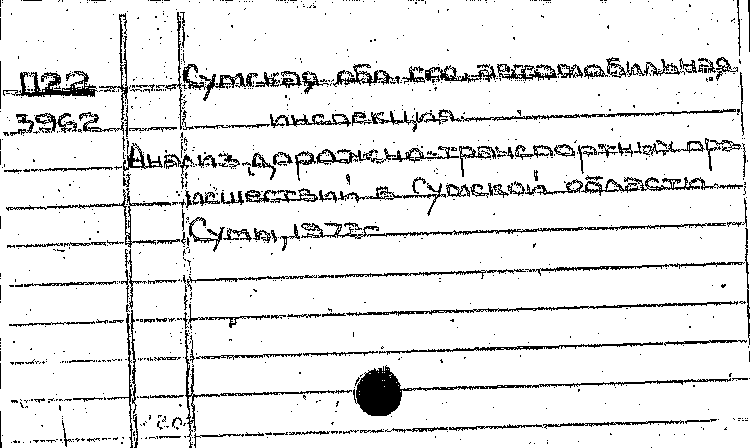 П22 Сумская обл. гос. автомобильная
3962 инспекция.
Анализ дорожно-транспортных про-
исшествий в Сумской области
Сумы, 1973-